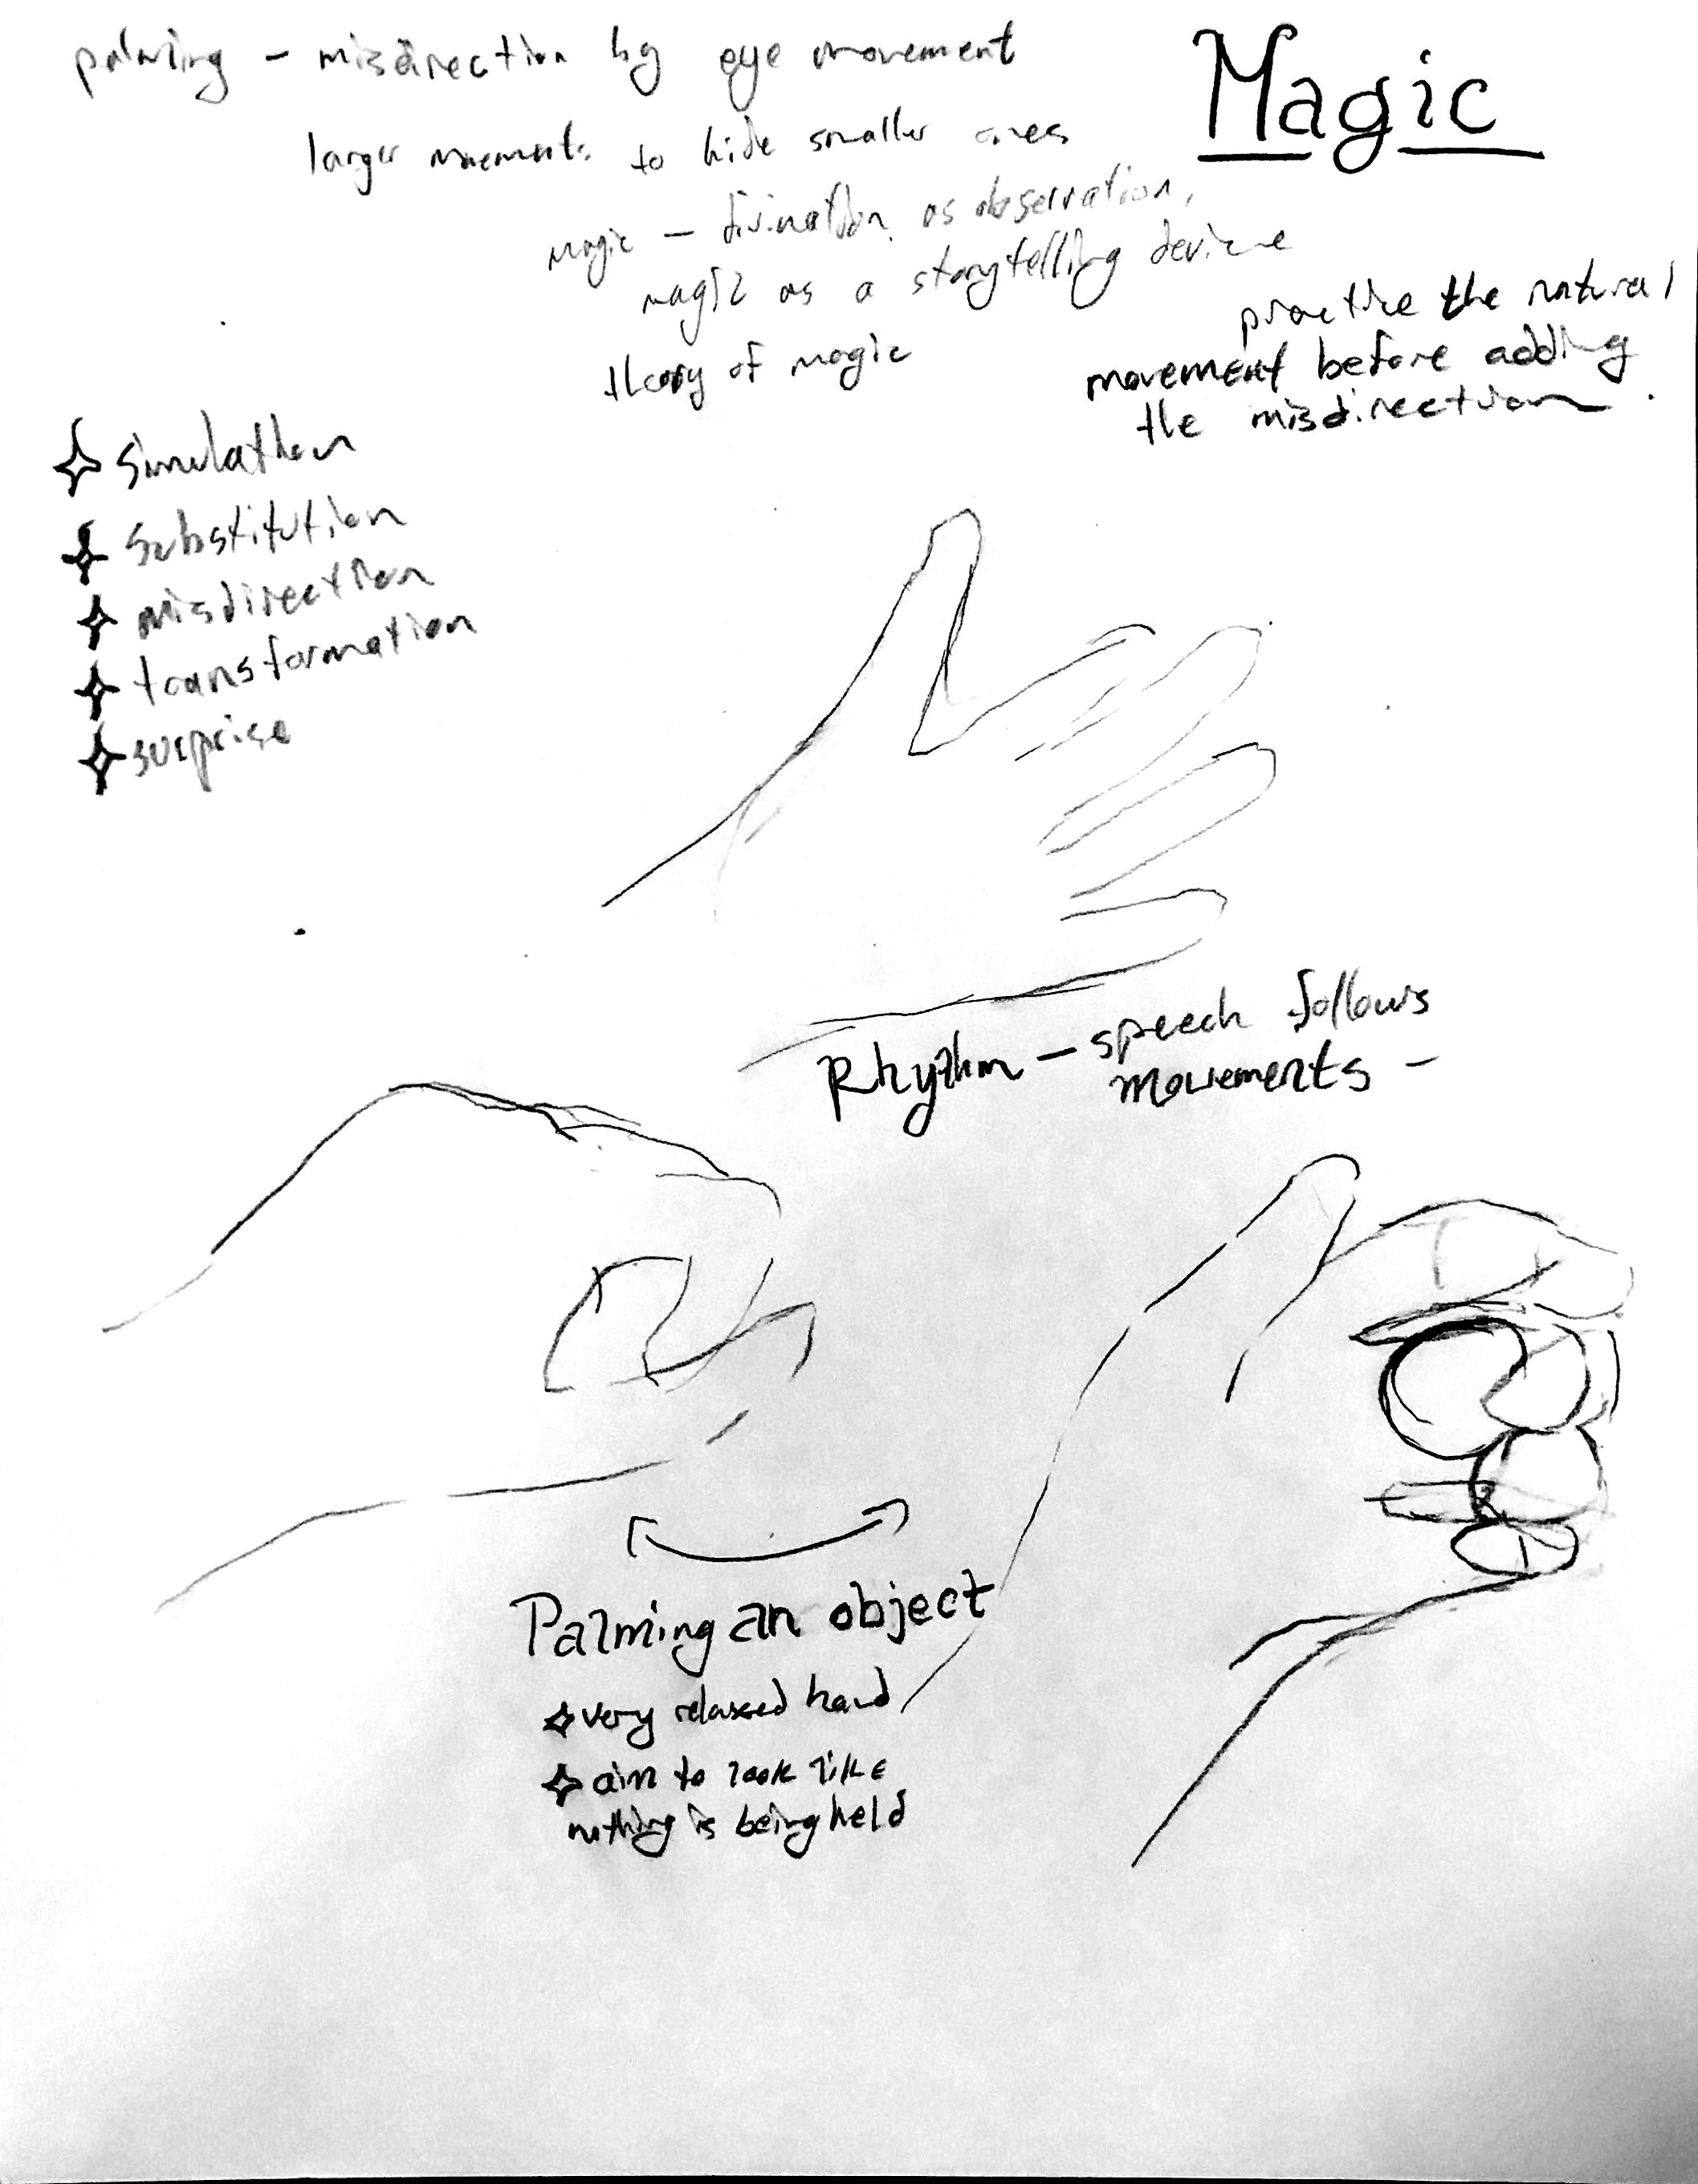 Magic
palming - misdirection by eye movement
larger movements to hide smaller ones
magic - divination as observation,
magic as a storytelling device
theory of magic
practice the natural
movement before adding
the misdirection.
simulation
substitution
misdirection
transformation
surprise
Rhythm - speech follows
movements -
Palming an object
very relaxed hand
aim to look like
nothing is being held